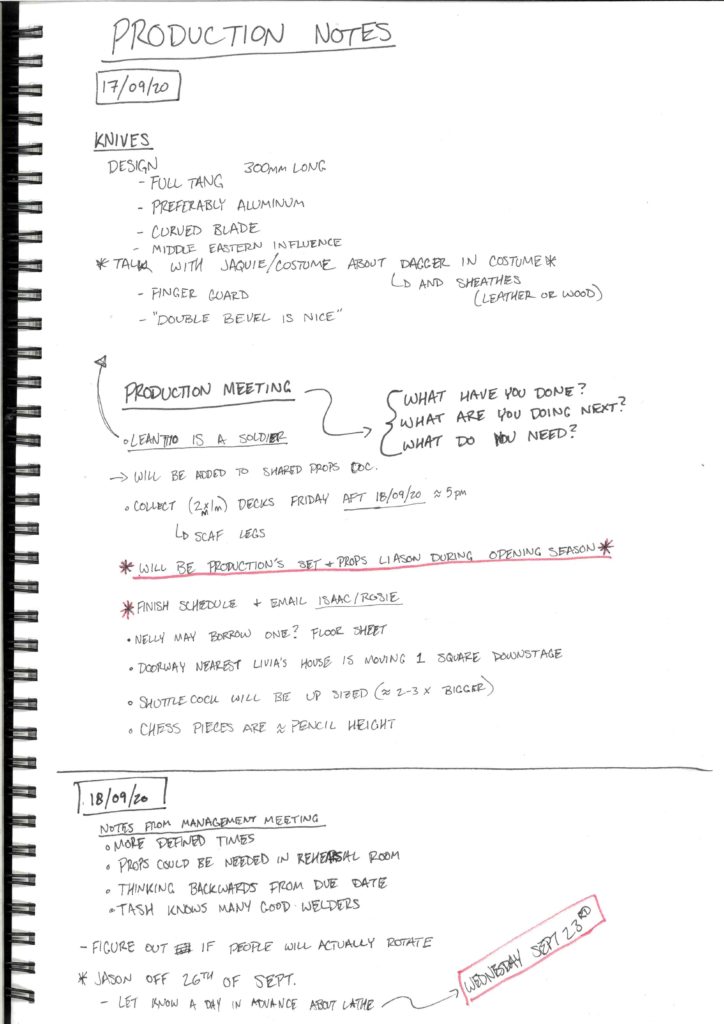 PRODUCTION NOTES
17/09/20
KNIVES
DESIGN 300mm LONG
- FULL TANG
- PREFERABLY ALUMINUM
- CURVED BLADE
- MIDDLE EASTERN INFLUENCE
* TALK WITH JAQUIE/COSTUME ABOUT DAGGER IN COSTUME *
↳ AND SHEATHES
(LEATHER OR WOOD)
- FINGER GUARD
- "DOUBLE BEVEL IS NICE"
PRODUCTION MEETING
WHAT HAVE YOU DONE?
WHAT ARE YOU DOING NEXT?
WHAT DO YOU NEED?
• LEANTIO IS A SOLDIER
→ WILL BE ADDED TO SHARED PROPS DOC.
• COLLECT (2m x 1m) DECKS FRIDAY AFT 18/09/20 ≈ 5pm
↳ SCAF LEGS
* WILL BE PRODUCTION'S SET + PROPS LIASON DURING OPENING SEASON *
* FINISH SCHEDULE + EMAIL ISAAC/ROSIE
• NELLY MAY BORROW ONE? FLOOR SHEET
• DOORWAY NEAREST LIVIA'S HOUSE IS MOVING 1 SQUARE DOWNSTAGE
• SHUTTLE COCK WILL BE UP SIZED (≈ 2-3 x BIGGER)
• CHESS PIECES ARE ≈ PENCIL HEIGHT
18/09/20
NOTES FROM MANAGEMENT MEETING
• MORE DEFINED TIMES
• PROPS COULD BE NEEDED IN REHEARSAL ROOM
• THINKING BACKWARDS FROM DUE DATE
• TASH KNOWS MANY GOOD WELDERS
- FIGURE OUT IF PEOPLE WILL ACTUALLY ROTATE
* JASON OFF 26TH OF SEPT.
- LET KNOW A DAY IN ADVANCE ABOUT LATHE
WEDNESDAY SEPT 23RD